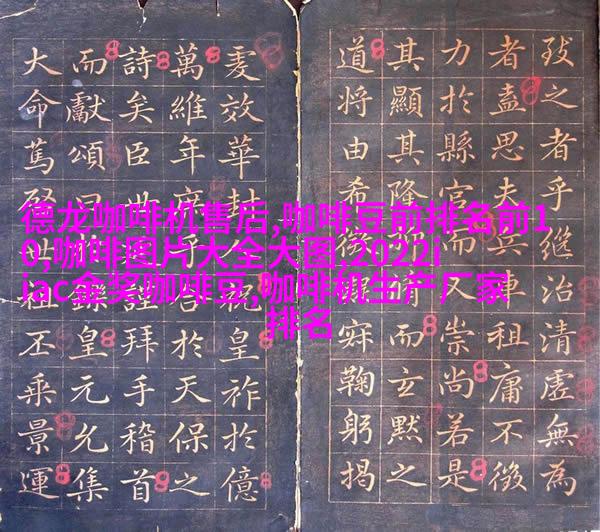 之者乎繼治清虛無為
者盍思夫兵車租庸不徵
力於縣官而又崇尚若是
其顯其隆而玄默之
道將由希寐鞠躬揭
效華封祝皇祚於億
萬維年於天保之
詩矣臣世謹拜手稽首
而獻頌曰皇元允集
大命篤啓世祖丕乘景運
德龙咖啡机售后,咖啡豆前排名前1
0,咖啡图片大全大图,2022i
iac金奖咖啡豆,咖啡机生产厂家
排名